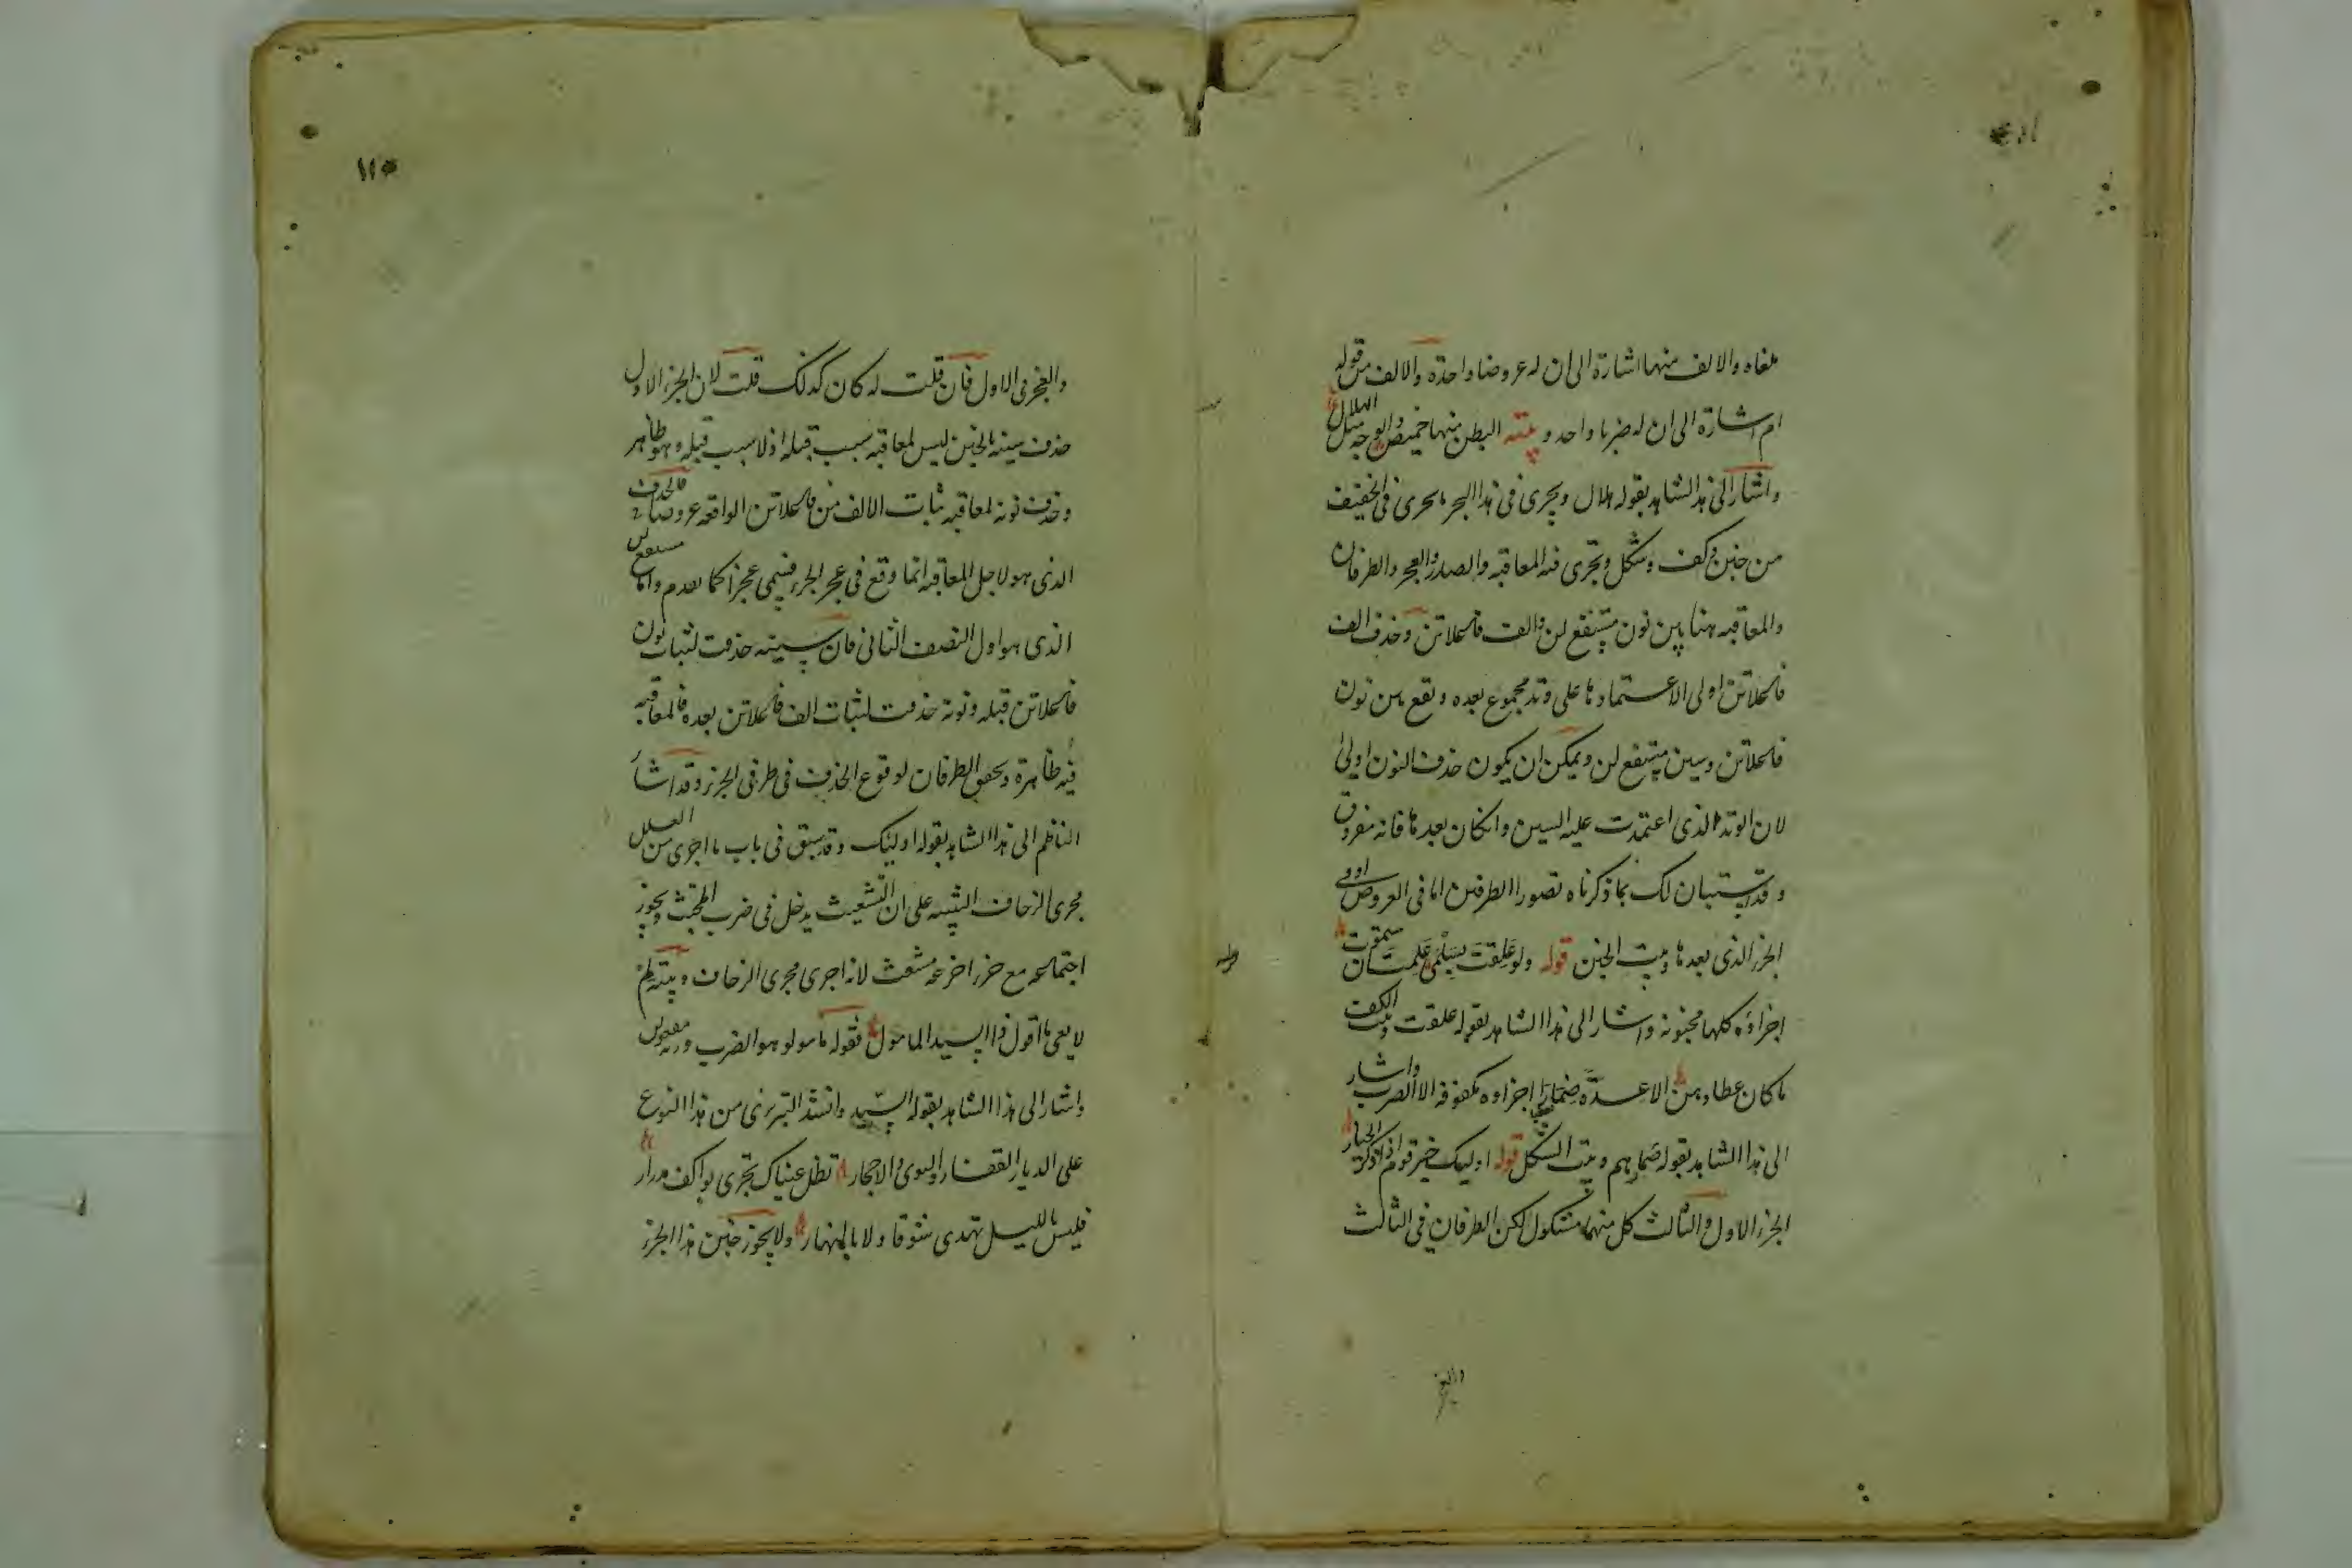 ملغاه والالف منها اشارة الى ان له عروضا واحدة والالف من قوله
ام اشارة الى ان له ضربا واحد وبيته البطن منها خميص والوجه مثل الهلال
واشار الى هذا الشاهد بقوله هلال ويجرى فى هذا البحر ما يجرى فى الخفيف
من خبن وكف وشكل وتجرى فيه المعاقبه والصدر والعجز والطرفان
والمعاقبه هنا بين نون مستفع لن والف فاعلاتن وحذف الف
فاعلاتن اولى الاعتمادها على وتد مجموع بعده وتقع بين نون
فاعلاتن وسين مستفع لن ويمكن ان يكون حذف النون اولى
لان الوتد الذى اعتمدت عليه السين وانكان بعدها فانه مفروق
وقد استبان لك بما ذكرناه تصور الطرفين اما فى العروض او فى
الجزء الذى بعدها وبيت الخبن قوله ولو علقت بسلمى علمت ان ستموت
اجزاءه كلها مخبونه واشار الى هذا الشاهد بقوله علقت وبيت الكف
ما كان عطاوهمن الا عدة ضمارا اجزاوه مكفوفه الا الضرب واشار
الى هذا الشاهد بقوله ضمارهم وبيت الشكل قوله اوليك خير قوم اذا ذكر الخيار
الجزء الاول والثالث كل منهما مشكول لكن الطرفان فى الثالث
والعجز
١١٥
والعجز فى الاول فان قلت له كان كذلك قلت لان الجزء الاول
حذف سينه بالخبن ليس لمعاقبه سبب قبله اذ لا سبب قبله وهو ظاهر
وحذف نونه لمعاقبه ثبات الالف من فاعلاتن الواقعه عروضا فالحذف
الذى هو لاجل المعاقبه انما وقع فى عجز الجزء فسمى عجزا كما تقدم واما مستفع لن
الذى هو اول النصف الثانى فان سينه حذفت لثبات نون
فاعلاتن قبله ونونه حذفت لثبات الف فاعلاتن بعده فالمعاقبه
فيه ظاهرة وتحقق الطرفان لوقوع الحذف فى طرفى الجزء وقد اشار
الناظم الى هذا الشاهد بقوله اوليك وقد سبق فى باب ما اجرى من العلل
مجرى الزحاف التنبيه على ان التشعيث يدخل فى ضرب المجتث ويجوز
اجتماعه مع جزء اخر غير مشعث لانه اجرى مجرى الزحاف وبيته لم
لا يعى ما اقول ذا السيد المامول فقوله مامولو هو الضرب وزنه مفعولن
واشار الى هذا الشاهد بقوله السيد وانشد التبريزى من هذا النوع
على الديار القفار والنوى والاحجار تظل عيناك تجرى بواكف مدرار
فليس بالليل تهدى شوقا ولا بالنهار ولا يجوز خبن هذا الجزء